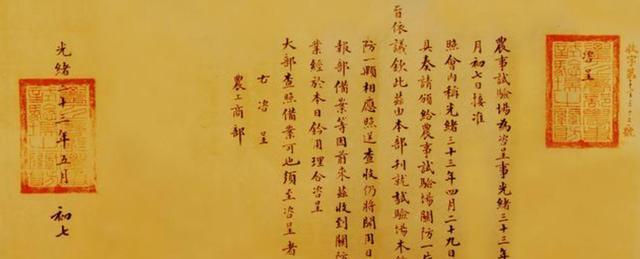 咨呈
農事試驗場為咨呈事光緒三十三年
月初七日接准
照會內稱光緒三十三年四月二十九日
具奏請頒給農事試驗場關防一片
旨依議欽此茲由本部刊就試驗場木
防一顆相應照送查收仍將開用日
報部備案等因前來茲收到關防
業經於本日啟用理合咨呈
大部查照備案可也須至咨呈者
右咨呈
農工商部
光緒三十三年五月 初七